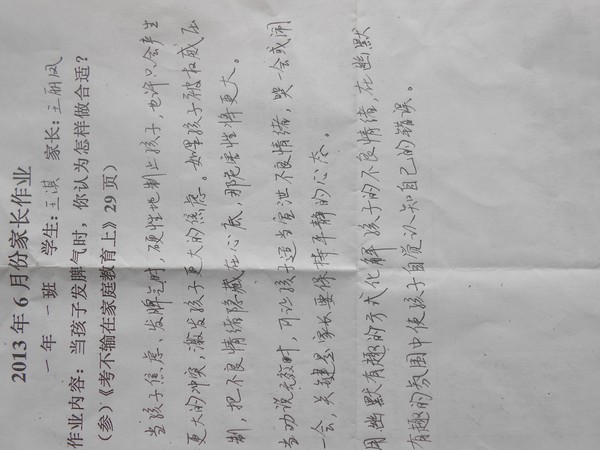 2013年6月份家长作业
一年 一班 学生:王淇 家长:王丽凤
作业内容:当孩子发脾气时,你认为怎样做合适?
(参)《考不输在家庭教育上》29页)
当孩子焦虑、发脾气时,硬性地制止孩子,也许只会产生
更大的冲突,激发孩子更大的焦虑。如果孩子被权威压
制,把不良情绪隐藏在心底,那危害性将更大。
当劝说无效时,可让孩子适当宣泄不良情绪,哭一会或闹
一会,关键是家长要保持平静的心态。
用幽默有趣的方式化解孩子的不良情绪,在幽默
有趣的氛围中使孩子自觉认知自己的错误。